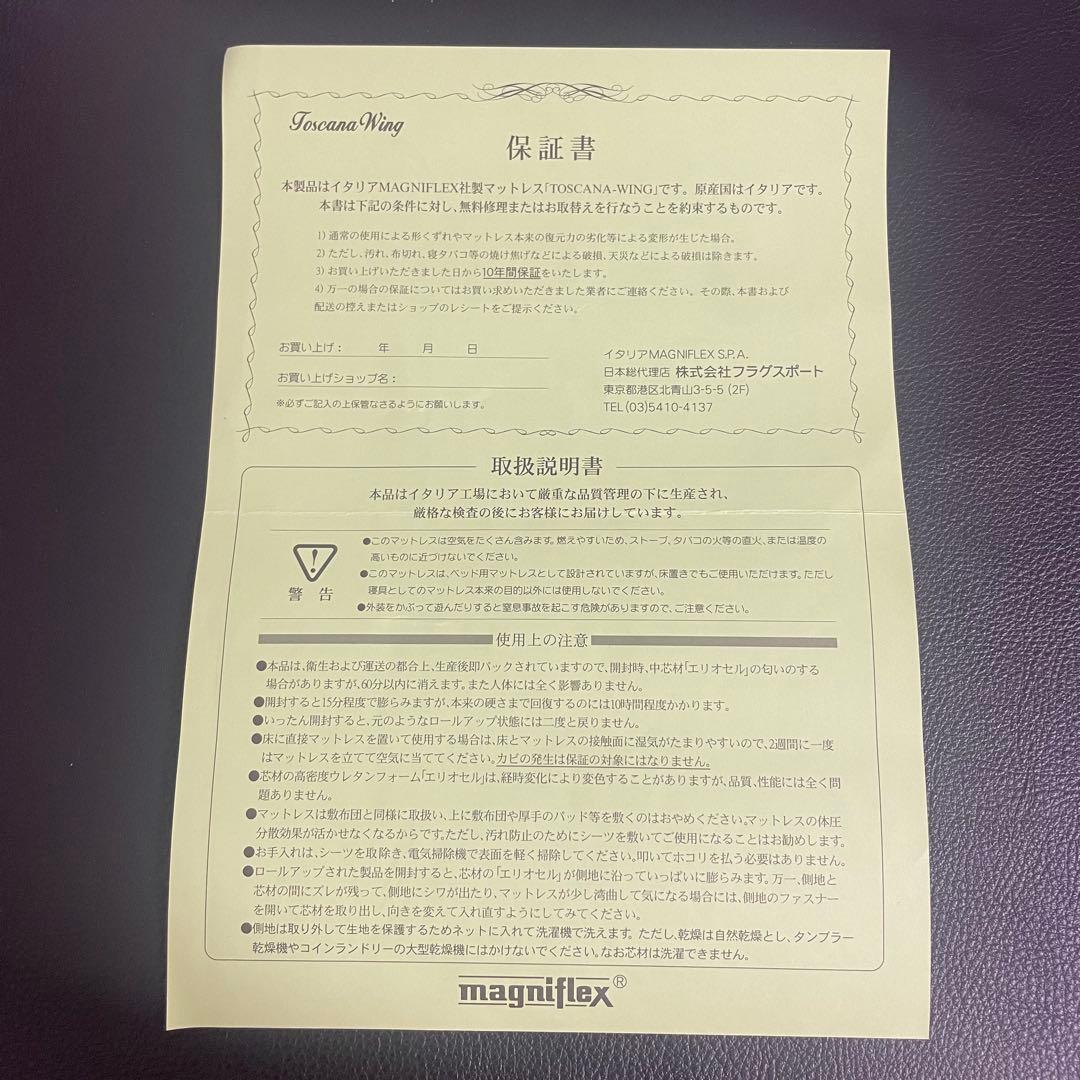 Toscana Wing
保証書
本製品はイタリアMAGNIFLEX社製マットレス「TOSCANA-WING」です。原産国はイタリアです。
本書は下記の条件に対し、無料修理またはお取替えを行なうことを約束するものです。
1) 通常の使用による形くずれやマットレス本来の復元力の劣化等による変形が生じた場合。
2) ただし、汚れ、布切れ、寝タバコ等の焼け焦げなどによる破損、天災などによる破損は除きます。
3) お買い上げいただきました日から10年間保証をいたします。
4) 万一の場合の保証についてはお買い求めいただきました業者にご連絡ください。その際、本書および
配送の控えまたはショップのレシートをご提示ください。
お買い上げ： 年 月 日
お買い上げショップ名：
※必ずご記入の上保管なさるようにお願いします。
イタリアMAGNIFLEX S.P.A.
日本総代理店 株式会社フラグスポート
東京都港区北青山3-5-5 (2F)
TEL (03)5410-4137
取扱説明書
本品はイタリア工場において厳重な品質管理の下に生産され、
厳格な検査の後にお客様にお届けしています。
警告
●このマットレスは空気をたくさん含みます。燃えやすいため、ストーブ、タバコの火等の直火、または温度の
高いものに近づけないでください。
●このマットレスは、ベッド用マットレスとして設計されていますが、床置きでもご使用いただけます。ただし
寝具としてのマットレス本来の目的以外には使用しないでください。
●外装をかぶって遊んだりすると窒息事故を起こす危険がありますので、ご注意ください。
使用上の注意
●本品は、衛生および運送の都合上、生産後即パックされていますので、開封時、中芯材「エリオセル」の匂いのする
場合がありますが、60分以内に消えます。また人体には全く影響ありません。
●開封すると15分程度で膨らみますが、本来の硬さまで回復するのには10時間程度かかります。
●いったん開封すると、元のようなロールアップ状態には二度と戻りません。
●床に直接マットレスを置いて使用する場合は、床とマットレスの接触面に湿気がたまりやすいので、2週間に一度
はマットレスを立てて空気に当ててください。カビの発生は保証の対象にはなりません。
●芯材の高密度ウレタンフォーム「エリオセル」は、経時変化により変色することがありますが、品質、性能には全く問
題ありません。
●マットレスは敷布団と同様に取扱い、上に敷布団や厚手のパッド等を敷くのはおやめください。マットレスの体圧
分散効果が活かせなくなるからです。ただし、汚れ防止のためにシーツを敷いてご使用になることはお勧めします。
●お手入れは、シーツを取除き、電気掃除機で表面を軽く掃除してください。叩いてホコリを払う必要はありません。
●ロールアップされた製品を開封すると、芯材の「エリオセル」が側地に沿っていっぱいに膨らみます。万一、側地と
芯材の間にズレが残って、側地にシワが出たり、マットレスが少し湾曲して気になる場合には、側地のファスナー
を開いて芯材を取り出し、向きを変えて入れ直すようにしてみてください。
●側地は取り外して生地を保護するためネットに入れて洗濯機で洗えます。ただし、乾燥は自然乾燥とし、タンブラー
乾燥機やコインランドリーの大型乾燥機にはかけないでください。なお芯材は洗濯できません。
magniflex®